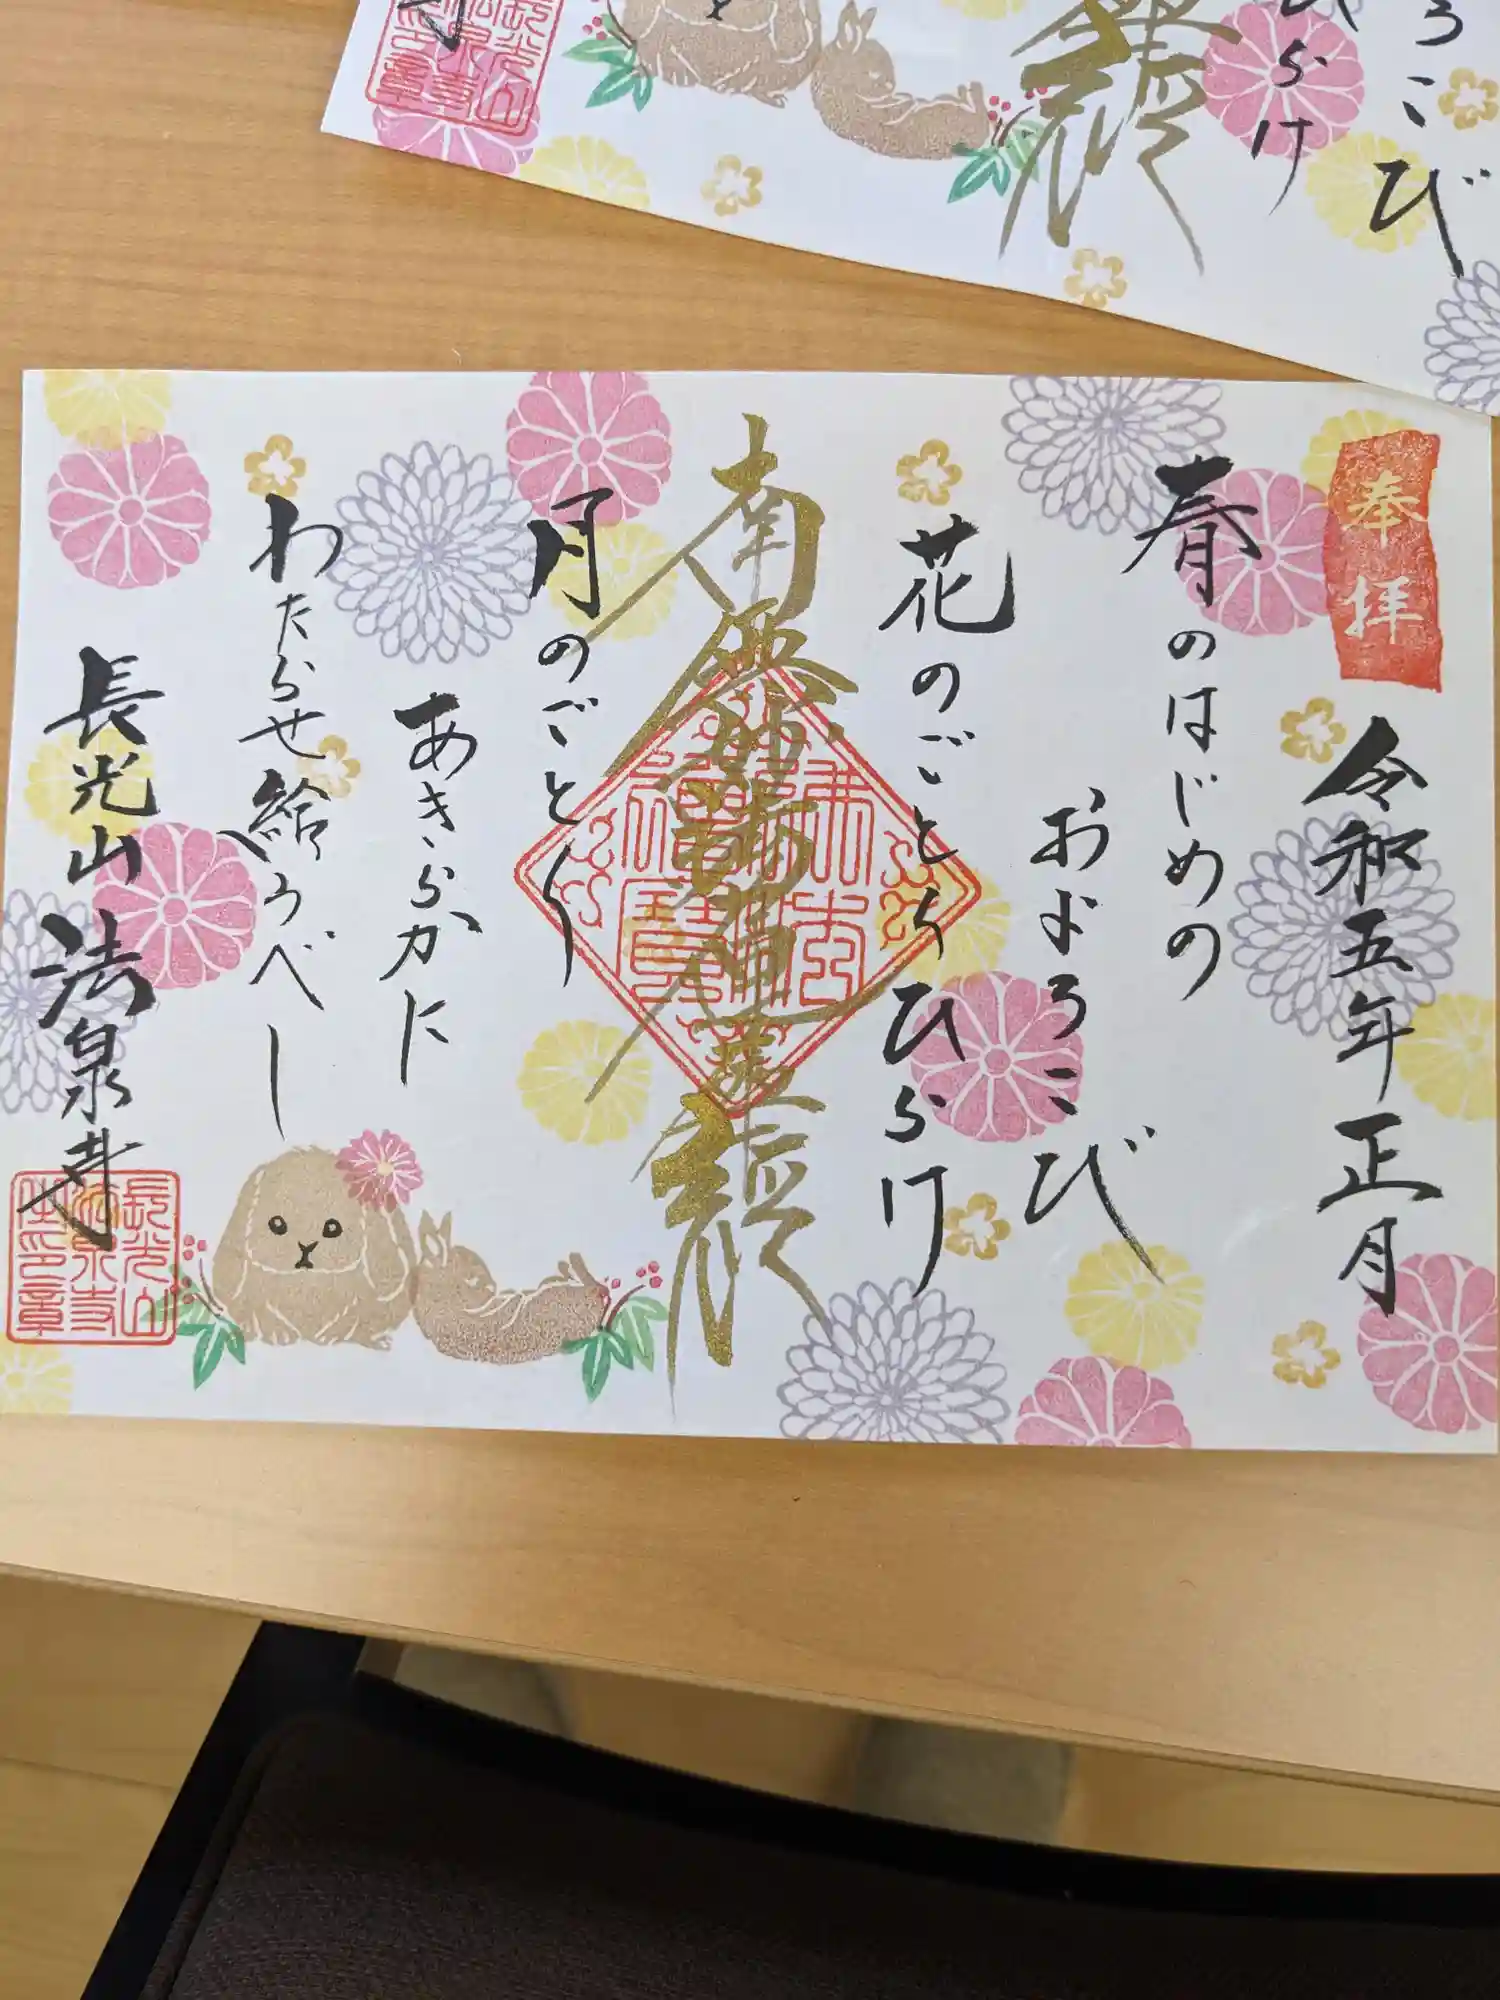 奉拝
令和五年正月
春のはじめの
およろこび
花のごとくひらけ
南無妙法蓮華経
月のごとく
あきらかに
わたらせ給うべし
長光山法泉寺
長光山
法泉寺
ろこび
らけ